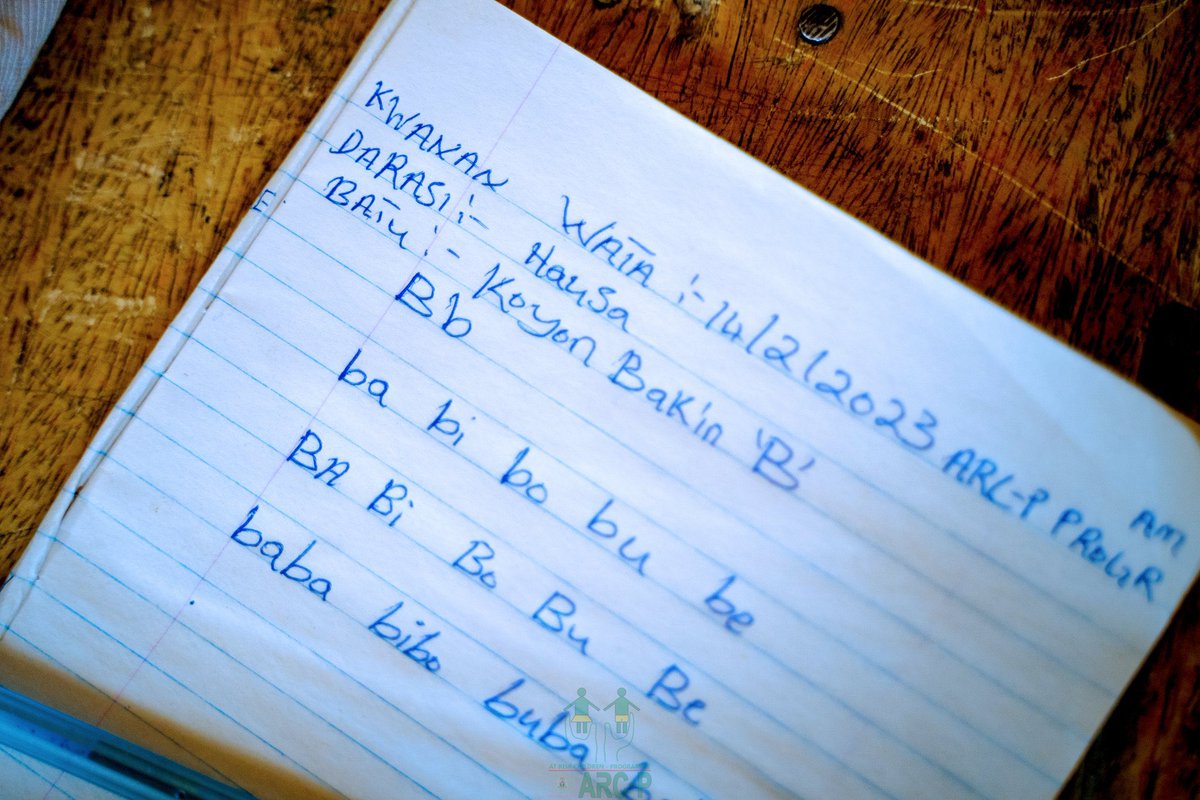 KWANAN WATA :- 14/2/2023 ARC-P PROGR
AM
DARASI :- Hausa
BATU :- Koyon Bakin 'B'
Bb
ba bi bo bu be
BA Bi Bo Bu Be
baba bibo buba
E
AT RISK CHILDREN - PROGRAMME
ARC-P